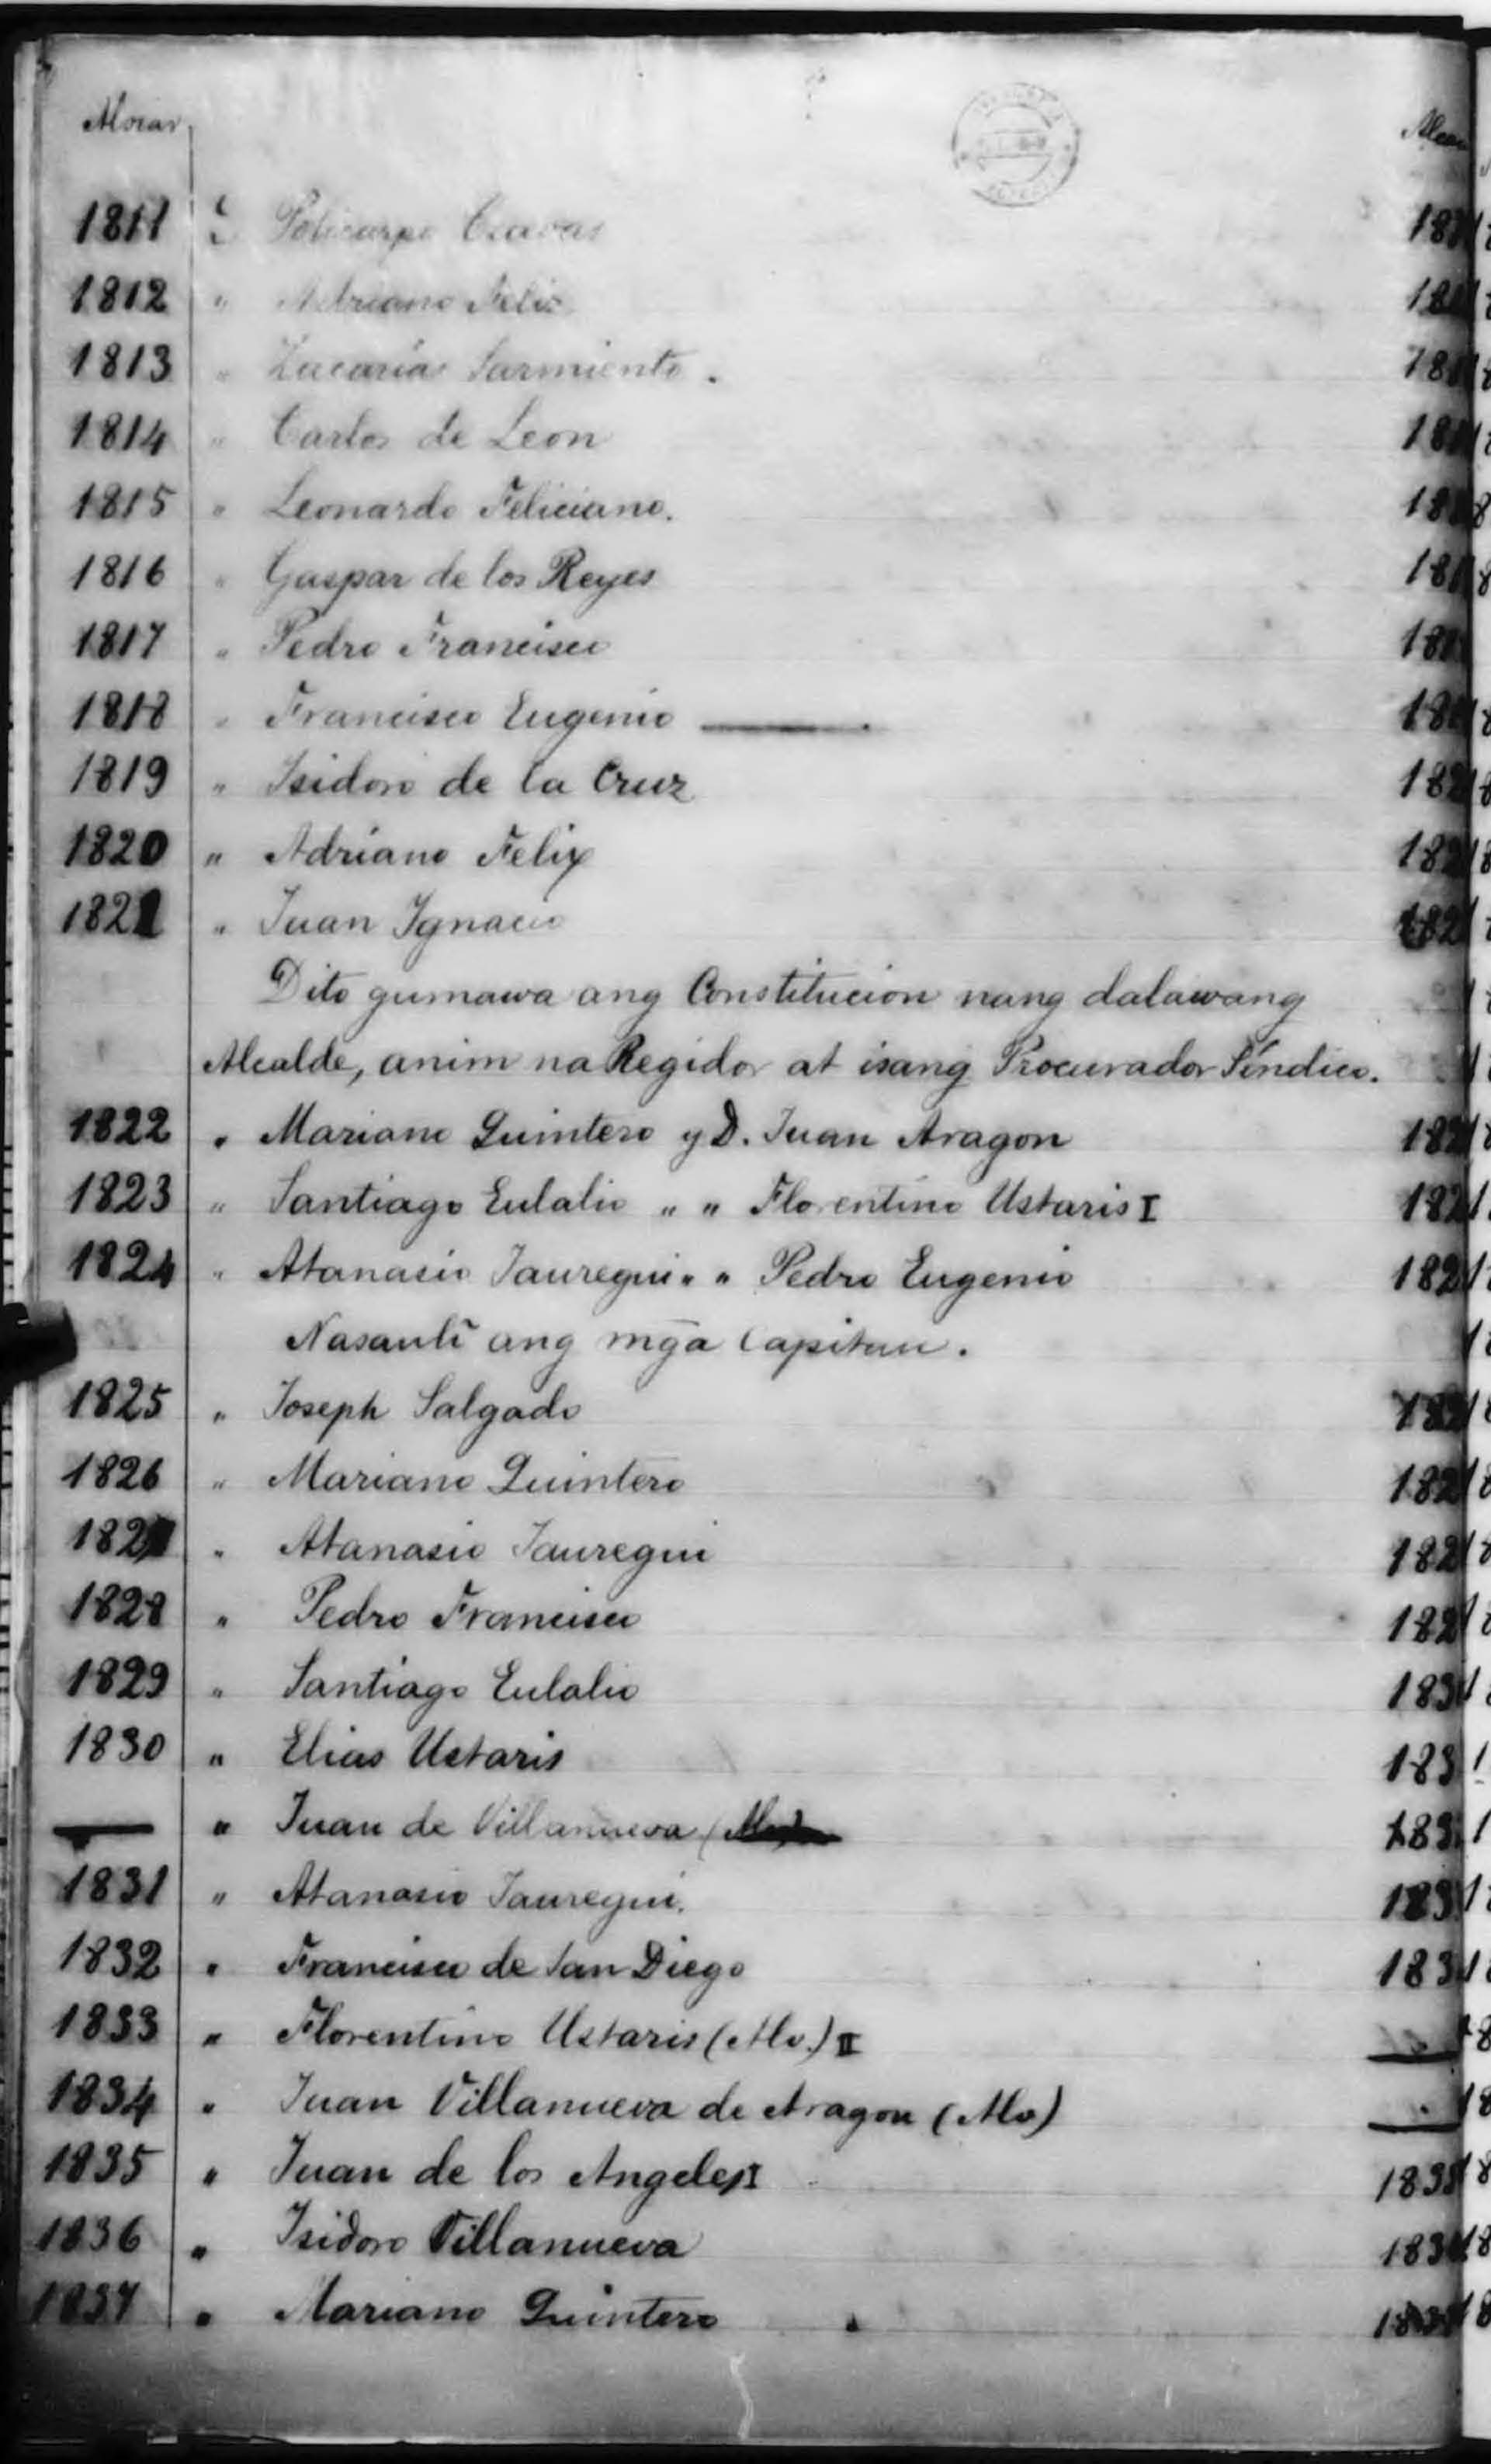 1811 Policarpo
1812 " Adriano Felix
1813 " Zacarias Sarmiento.
1814 " Carlos de Leon
1815 " Leonardo Feliciano.
1816 " Gaspar de los Reyes
1817 " Pedro Francisco
1818 " Francisco Eugenio —
1819 " Isidoro de la Cruz
1820 " Adriano Felix
1821 " Juan Ygnacio
Dito gumawa ang Constitucion nang dalawang
Alcalde, anim na Regidor at isang Procurador Síndico.
1822 " Mariano Quintero y D. Juan Aragon
1823 " Santiago Eulalio " " Florentino Ustaris I
1824 " Atanasio Jauregui " " Pedro Eugenio
Nasaulî ang mg̃a Capitan.
1825 " Joseph Salgado
1826 " Mariano Quintero
1827 " Atanasio Jauregui
1828 " Pedro Francisco
1829 " Santiago Eulalio
1830 " Elias Ustaris
— " Juan de Villanueva
1831 " Atanasio Jauregui.
1832 " Francisco de San Diego
1833 " Florentino Ustaris (Mo.) II
1834 " Juan Villanueva de Aragon (Mo)
1835 " Juan de los Angeles I
1836 " Isidoro Villanueva
1837 " Mariano Quintero